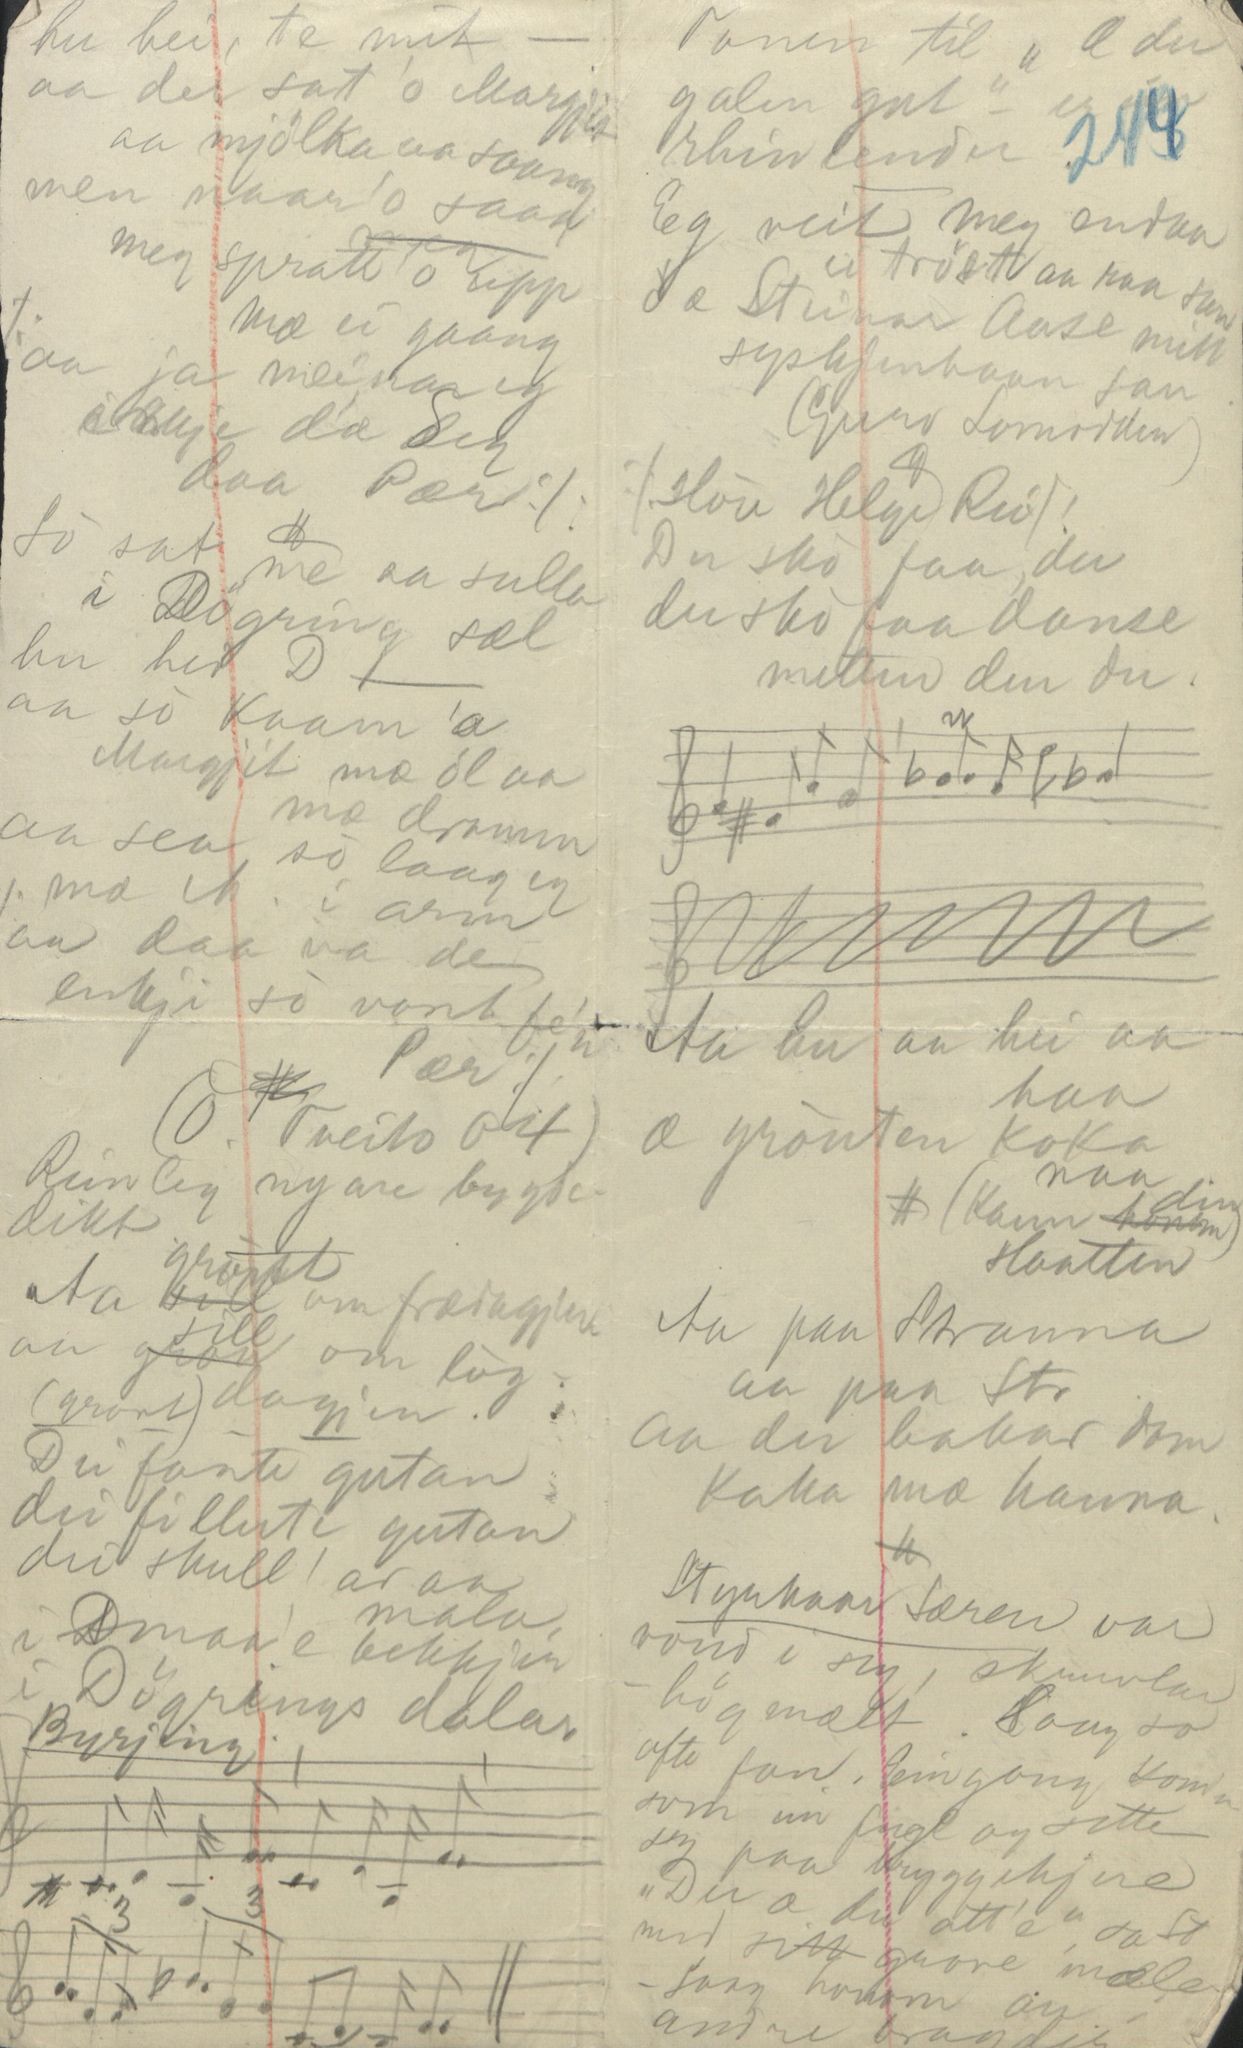 hu hei, te mit —
aa der sat 'o Margjit
aa mjölka aa saang
men naar 'o saag
meg spratt 'o upp
mæ ei gaang
/: aa ja meinar eg
inkje dæ Seg
daa Pær :/:
So sat me aa sulla
i Dögring sæl
hu hei D —
aa so kaam 'a
Margjit mæ öl aa
mæ dramm
aa sea, so laag eg
/: mæ M. i arm
aa daa va de
enkji so vont fe'n
Pær :/:
(Ö. Tveito 64)
Rimleg nyare bygde-
dikt
grönt
Aa sill om frædagjen
sill
aa gröt om lög-
(grönt) dagjen.
Dei fante gutan
dei fillute gutan
dei skull' ar aa
mala,
i Dmaa'e bekkjen
i Dögrings dalar
Byrjing.
3 3
Tonen til "Æ du
galen gut" er ein
rhinlendar.
218
Eg veit meg endaa
ei tröst aa kaa san
dæ Steinar Aase mitt
syskjenbaan san.
(Guro Lomodden)
/: Höre Helge Rui :/!
Du sko faa, du
du sko faa danse
metten den du.
Aa hu aa hei aa
haa
æ grönten koka
naa
(Kann honom din)
Haatten
Aa paa Stranna
aa paa Str
aa der bakar dom
kaka mæ hanna.
Styrkaar Søren var
vond i seg, skumlar
- högmælt. Saag so
ofte fan. Eingong kom'n
som ein fugl og sette
seg paa bryggekjere
"Der æ du att'e" sa St
med sitt grove mæle
- Saag honom au i
andre